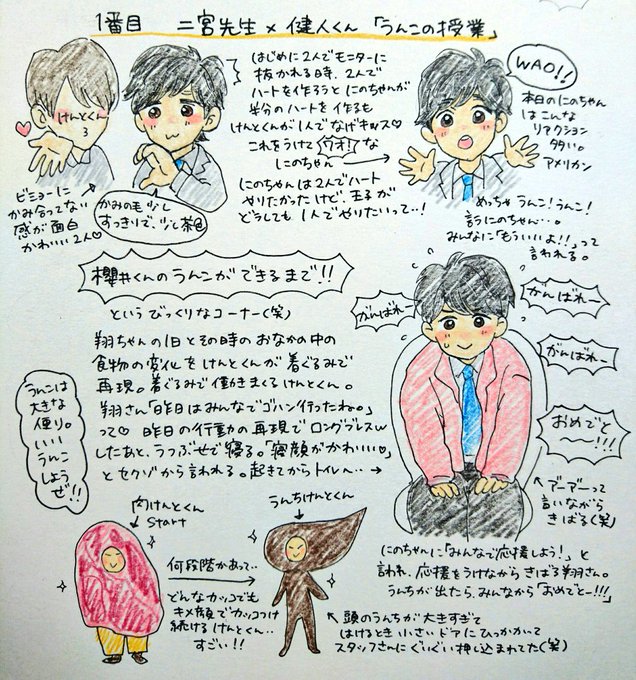 1番目 二宮先生×健人くん「うんこの授業」
けんとくん
ビミョーに
かみ合ってない
感が面白
かわいい2人♡
かみの毛少し
すっきりで、少し茶色
はじめに2人でモニターに
抜かれる時、2人で
ハートを作ろうとにのちゃんが
半分のハートを作るも
けんとくんが1人でなげキッス♡
これをうけてウオ!な
にのちゃん
にのちゃんは2人でハート
やりたかったけど、王子が
どうしても1人でやりたいって‥!
WAO!!
本日のにのちゃん
はこんな
リアクション
多い。
アメリカン
めっちゃうんこ!うんこ!
言うにのちゃん…。
みんなに「もういいよ!!」って
言われる。
櫻井くんのうんこができるまで!!
というびっくりなコーナー(笑)
翔ちゃんの1日とその時のおなかの中の
食物の変化をけんとくんが着ぐるみで
再現。着ぐるみで働きまくるけんとくん。
翔さん「昨日はみんなでゴハン行ったね。」
って♡ 昨日の行動の再現でロングブレスw
したあと、うつぶせで寝る。「寝顔がかわいい♡」
とセクゾから言われる。起きてからトイレへ‥→
うんこは
大きな
便り。
いい
うんこ
しよう
ぜ!!
がんばれー
がんばれー
がんばれー
おめでと
〜ー!!!
アーアーって
言いながら
きばる(笑)
にのちゃんに「みんなで応援しよう!」と
言われ、応援をうけながらきばる翔さん。
うんちが出たら、みんなから「おめでとー!!!」
肉けんとくん
Start
何段階かあって‥
どんなカッコでも
キメ顔でカッコつけ
続けるけんとくん‥
すごい!!
うんちけんとくん
頭のうんちが大きすぎて
はけるとき小さいドアにひっかかって
スタッフさんにぐいぐい押し込まれてた(笑)